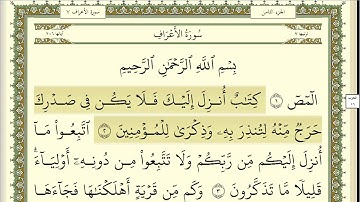 سورة الأعراف ٧
الجزء الثامن
سُورَةُ الأَعْرَافِ
بِسْمِ اللَّهِ الرَّحْمَٰنِ الرَّحِيمِ
الٓمٓصٓ ١ كِتَٰبٌ أُنزِلَ إِلَيْكَ فَلَا يَكُن فِى صَدْرِكَ
حَرَجٌ مِّنْهُ لِتُنذِرَ بِهِۦ وَذِكْرَىٰ لِلْمُؤْمِنِينَ ٢ ٱتَّبِعُوا۟ مَآ
أُنزِلَ إِلَيْكُم مِّن رَّبِّكُمْ وَلَا تَتَّبِعُوا۟ مِن دُونِهِۦٓ أَوْلِيَآءَ ۗ
قَلِيلًا مَّا تَذَكَّرُونَ ٣ وَكَم مِّن قَرْيَةٍ أَهْلَكْنَٰهَا فَجَآءَهَا